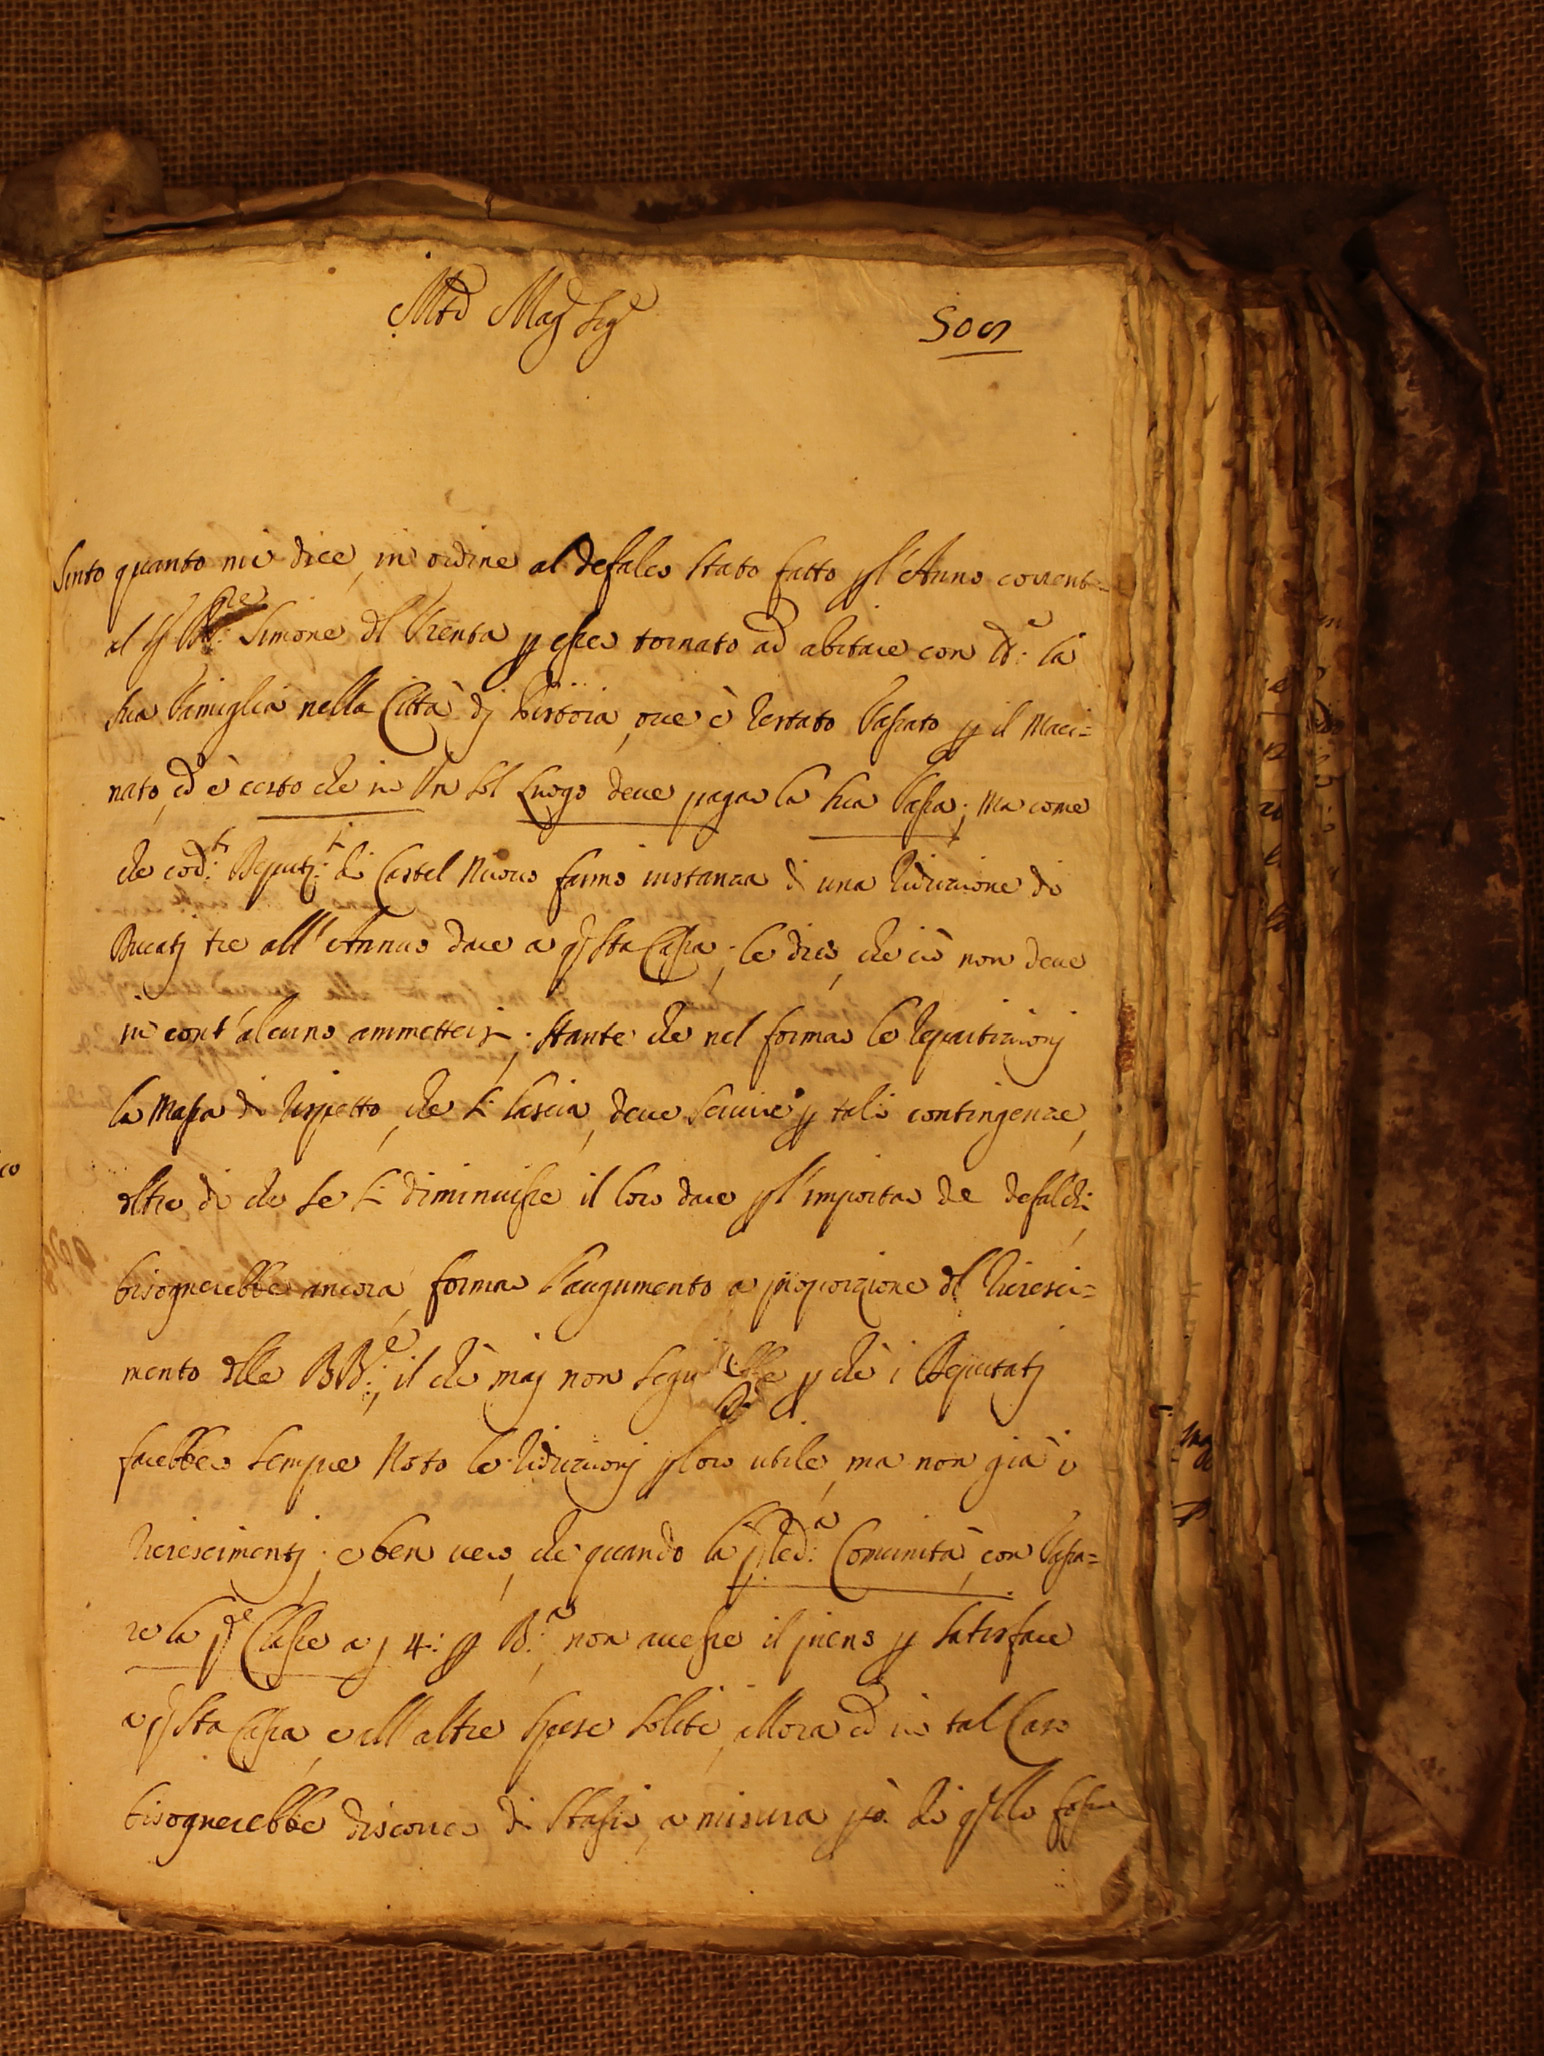 Mto Mag Sig
505
Sento quanto mi dice, in ordine al defalco stato fatto pl'Anno corrent=
al Simone dl Trenta p esser tornato ad abitare con la
sua Famiglia nella Città dj Pistoia, ove è restato tassato p il Maci=
nato, ed è certo che in Un sol Luogo deve pagar la sua Tassa; Ma come
che cod:ti Deput:ti di Castel Nuovo fanno instanza di una riduzione di
Ducatj tre all'Annuo dare a qsta Cassa; le dico, che ciò non deve
in cont'alcuno ammettersi; stante che nel formar le repartizionj
la Massa di rispetto, che si lascia, deve servire p tali contingenze,
oltre di che se si diminuisse il loro dare pl'importar de defalchi,
bisognerebbe ancora, formar l'augumento a proporzione dl Accresci=
mento dlle BB:e, il chè maj non seguirebbe p chè i Deputatj
farebbero sempre Noto le riduzionj p loro utile, ma non già i
Accrescimentj; e ben vero, che quando la pled:a Comunità, con tassa=
re la pd:e Classe a j 4: p B:a, non avesse il pieno p satisfare
a qsta Cassa, e all'altre spese solite, allora ed in tal Caso
bisognerebbe discorrer di tassie, a misura pò: di qllo fosse